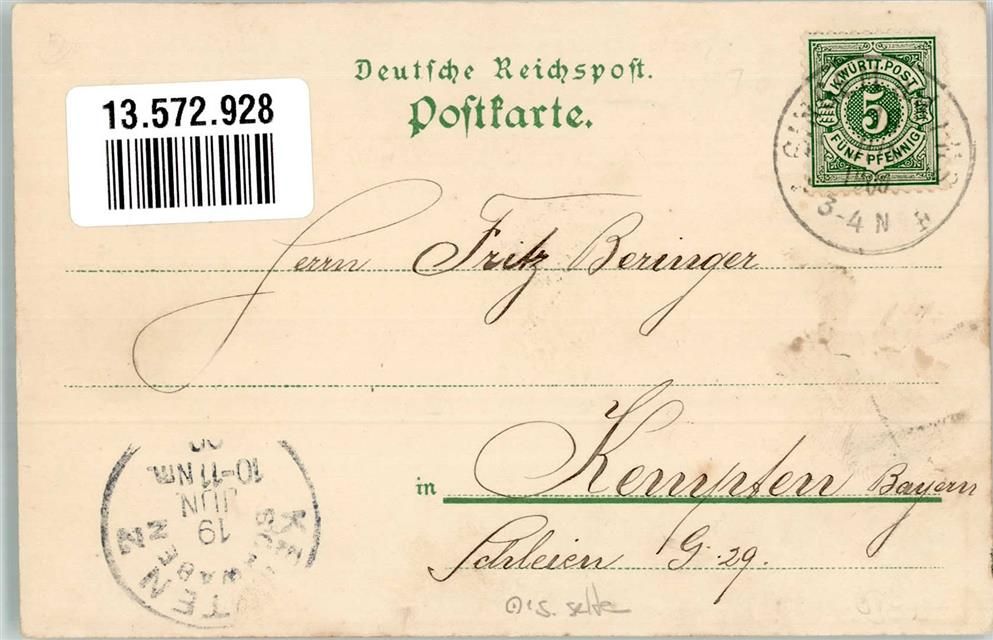 13.572.928
Deutsche Reichspost.
Postkarte.
K. WÜRTT. POST
5
FÜNF PFENNIG
3-4 N
Herrn Fritz Beringer
in Kempten Bayern
G. 29.
KEMPTEN
SCHWABEN
19
JUN.
10-11 Nm.
00